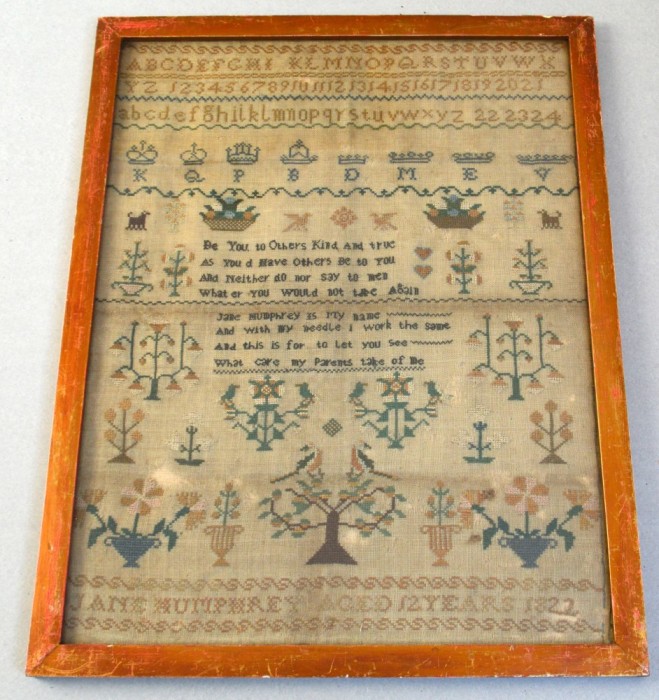 ABCDEFGHI KLMNOPQRSTUVWX
YZ 123456789101112131415161718192021
abcdefghilklmnopqrstuvwxyz 222324
K Q P B D M E V
Be You to Others Kind And true
As You d Have Others Be to You
And Neither do nor say to men
What er You Would not take Again
Jane Humphrey is My name
And with my needle i work the same
And this is for to let you see
What care my Parents take of me
JANE HUMPHREY AGED 12 YEARS 1822